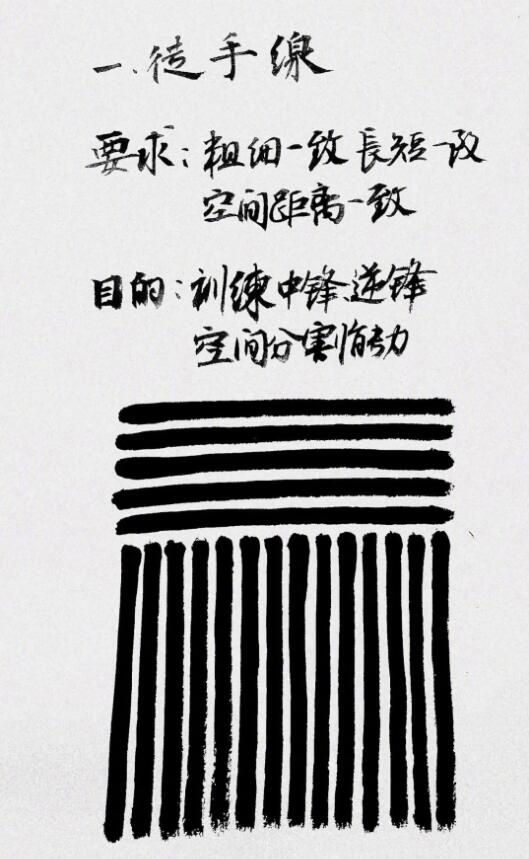 一.徒手線
要求:粗细一致長短一致
空间距离一致
目的:训練中锋逆锋
空间分割能力